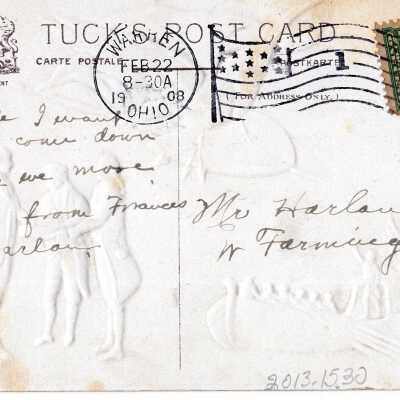 TUCK'S POST CARD
CARTE POSTALE
POSTKARTE
(FOR ADDRESS ONLY.)
WARREN
FEB 22
8-30A
1908
OHIO
1
I want
come down
we move
from Frances
Mr Harlan
W Farming
2013.15.30